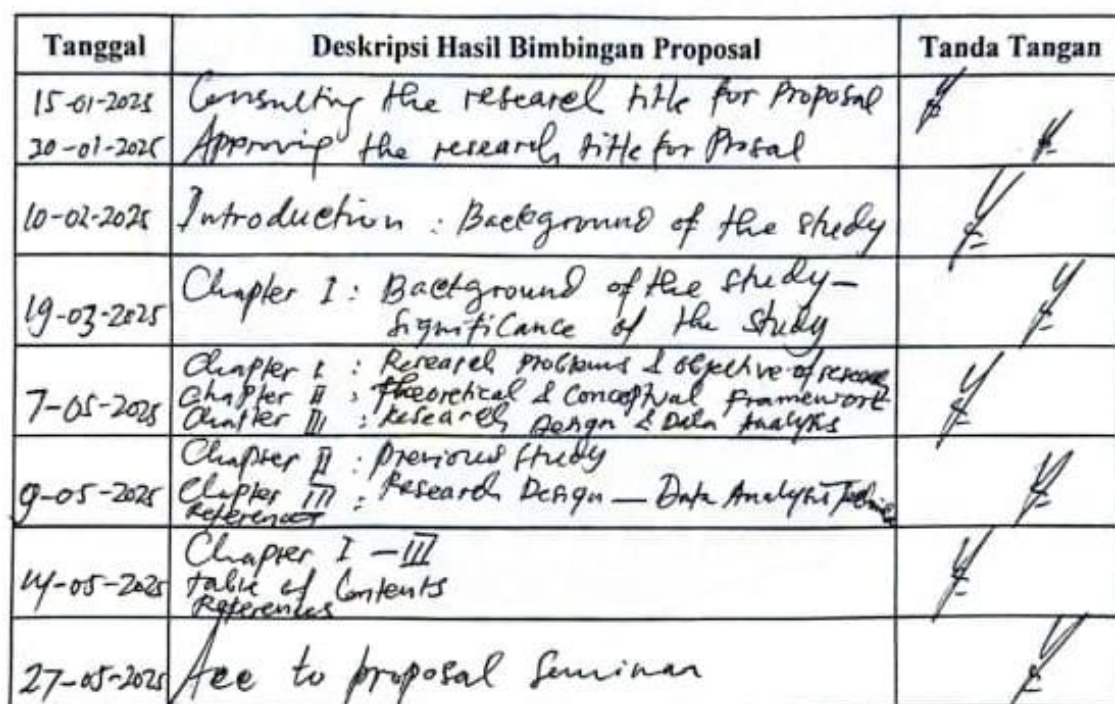 Tanggal Deskripsi Hasil Bimbingan Proposal Tanda Tangan
15-01-2025 Consulting the research title for Proposal
30-01-2025 Approving the research title for Prosal
10-02-2025 Introduction : Background of the study
Chapter I : Background of the study –
19-03-2025 Significance of the study
Chapter I : Research problems & objective of research
7-05-2025 Chapter II : Theoretical & Conceptual framework
Chapter III : Research Design & Data Analysis
Chapter II : Previous study
9-05-2025 Chapter III : Research Design – Data Analysis
References
Chapter I – III
14-05-2025 Table of Contents
References
27-05-2025 Acc to proposal Seminar